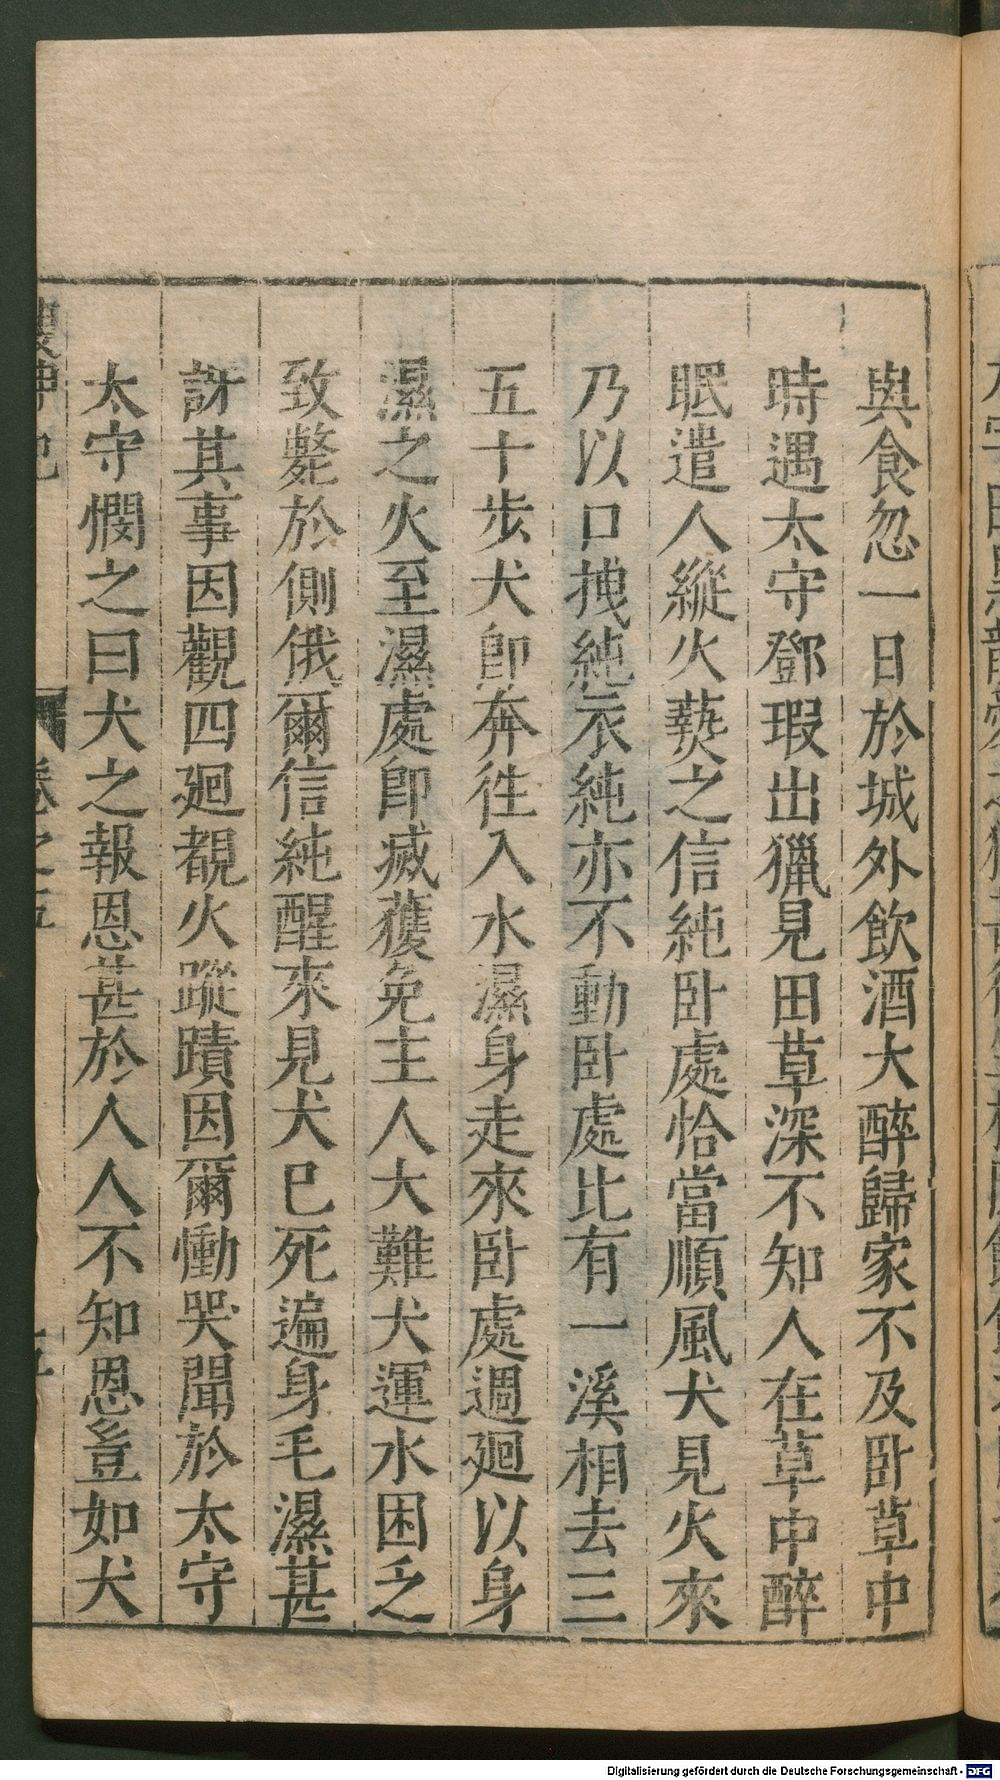 與食忽一日於城外飲酒大醉歸家不及卧草中
時遇太守鄧瑕出獵見田草深不知人在草中醉
眠遣人縱火爇之信純卧處恰當順風犬見火來
乃以口拽純衣純亦不動卧處比有一溪相去三
五十步犬卽奔徃入水濕身走來卧處週廻以身
濕之火至濕處卽滅獲免主人大難犬運水困乏
致斃於側俄爾信純醒來見犬已死遍身毛濕甚
訝其事因觀四廻覩火蹤蹟因爾慟哭聞於太守
太守憫之曰犬之報恩甚於人人不知恩豈如犬
搜神記 卷之五
Digitalisierung gefördert durch die Deutsche Forschungsgemeinschaft - DFG